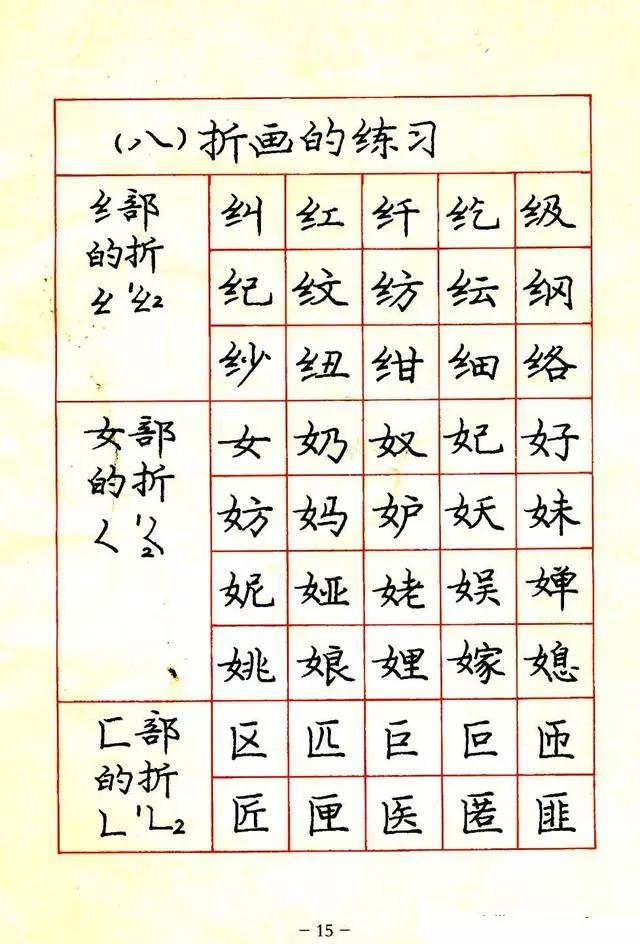 （八）折画的练习
纟部 纠 红 纤 纥 级
的折 纪 纹 纺 纭 纲
纱 纽 绀 细 络
女部 女 奶 奴 妃 好
的折 妨 妈 妒 妖 妹
妮 娅 姥 娱 婵
姚 娘 娌 嫁 媳
匚部 区 匹 巨 叵 匝
的折 匠 匣 医 匿 匪
– 15 –